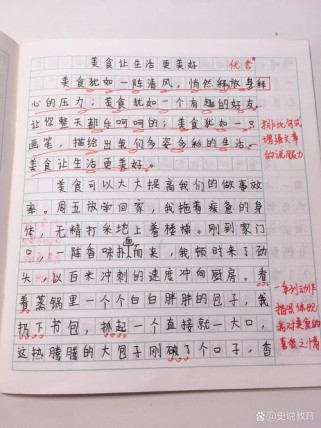 美食让生活更美好
优秀
美食犹如一阵清风，悄然释放身
心的压力；美食犹如一个有趣的好友，
让你整天都乐呵呵的；美食犹如一只
画笔，描绘出我们多姿多彩的生活。
美食让生活更美好。
排比句式
增强文章
的说服力
美食可以大大提高我们的做事效
率。周五放学回家，我拖着疲惫的身
体，无精打采地上着楼梯。刚到家门
口，一阵香味扑面而来，我顿时来了劲
头，以百米冲刺的速度冲向厨房。看
着蒸锅里一个个白白胖胖的包子，我
扔下书包，抓起一个直接就一大口，
这热腾腾的大包子刚破了个口子，香
一系列动作
描写体现
我对美食的
喜爱之情
@史说教育